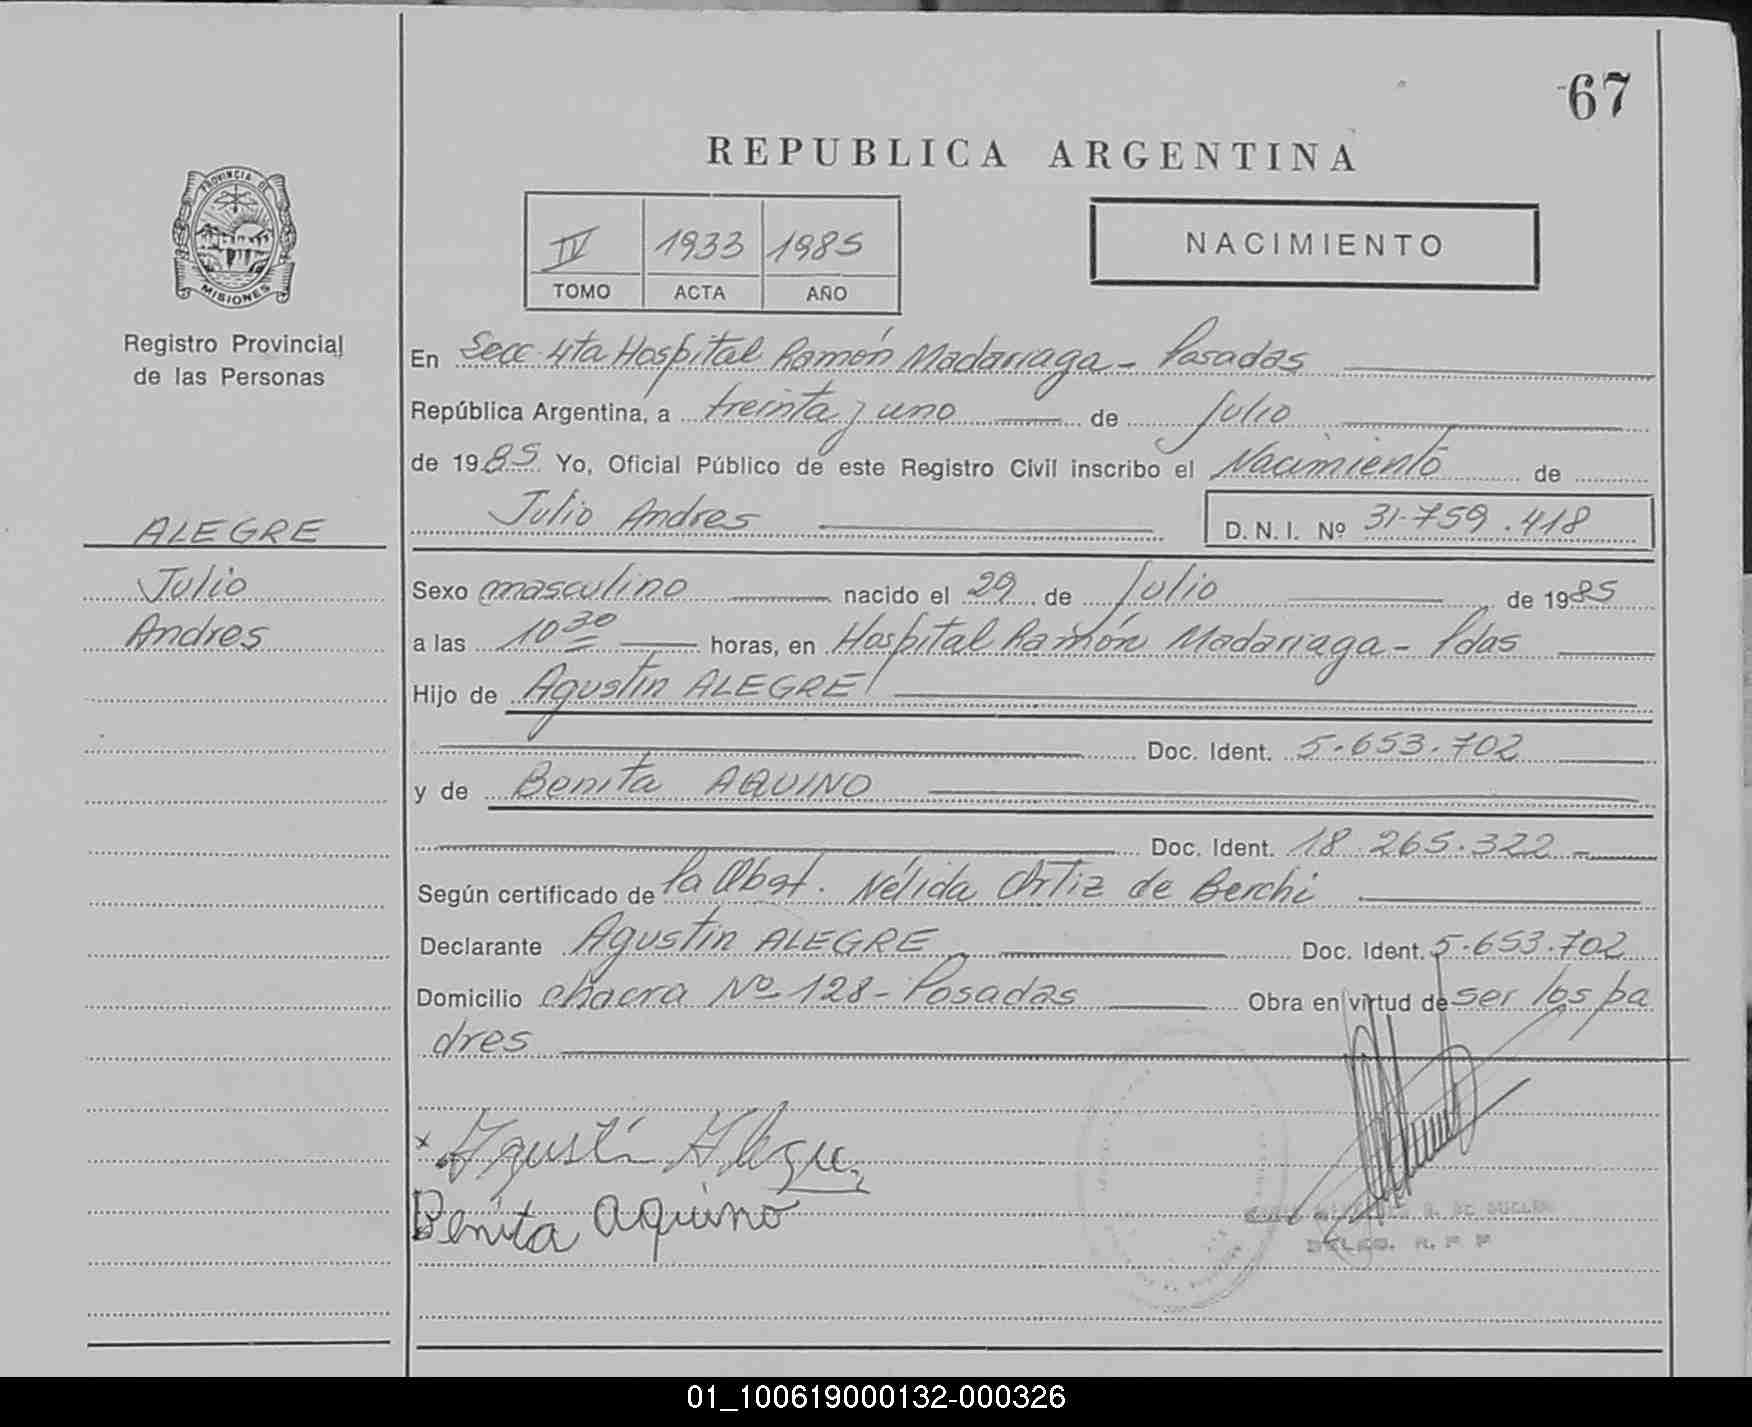 67
REPUBLICA ARGENTINA
PROVINCIA DE
MISIONES
Registro Provincial
de las Personas
IV 1933 1985
TOMO ACTA AÑO
NACIMIENTO
En Secc. 4ta Hospital Ramón Madariaga - Posadas
República Argentina, a treinta y uno de Julio
de 1985 Yo, Oficial Público de este Registro Civil inscribo el Nacimiento de
Julio Andres D. N. I. Nº 31-759.418
ALEGRE
Julio
Andres
Sexo masculino nacido el 29 de Julio de 1985
a las 10 30 horas, en Hospital Ramón Madariaga - Pdas
Hijo de Agustin ALEGRE
Doc. Ident. 5.653.702
y de Benita AQUINO
Doc. Ident. 18.265.322 -
Según certificado de la Obst. Nélida Ortiz de Berchi
Declarante Agustin ALEGRE Doc. Ident. 5.653.702
Domicilio chacra Nº 128 - Posadas Obra en virtud de ser los pa
dres
x Agustín Alegre
Benita Aquino
DELEG. R. P. P
01_100619000132-000326